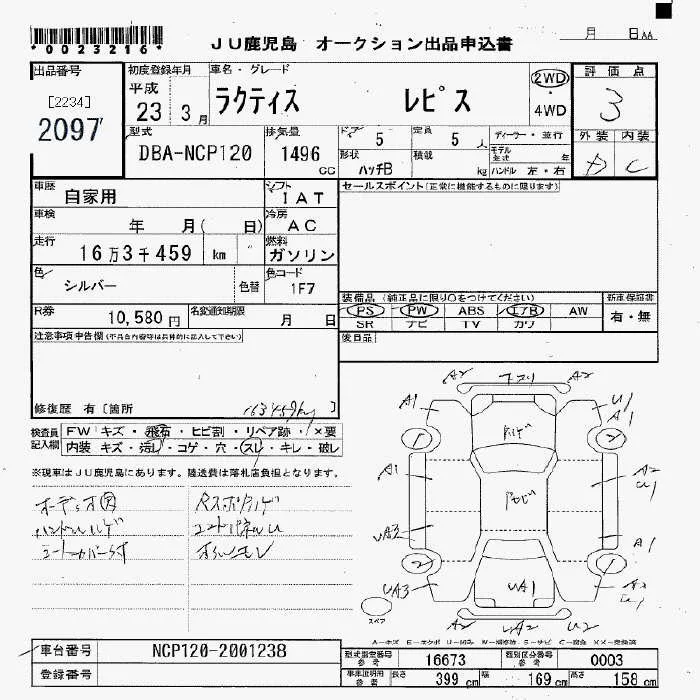 *0023216*
JU鹿児島 オークション出品申込書
月 日AA
出品番号
[2234]
2097
初度登録年月
平成
23 3月
車名・グレード
ラクティス レピス
2WD
・
4WD
評価点
3
外装 内装
D C
型式
DBA-NCP120
排気量
1496
CC
ドア
5
定員
5 人
形状
ハッチB
積載
kg
ディーラー・並行
モデル
年
ハンドル 左・右
車歴
自家用
シフト
IAT
車検
年 月( 日)
冷房
AC
走行
16万3千459 km
燃料
ガソリン
色
シルバー
色替
色コード
1F7
R券
10,580円
名変通知期限
月 日
セールスポイント(正常に機能するものに限ります)
装備品(純正品に限り○をつけてください)
新車保証書
PS PW ABS エアB AW
SR ナビ TV カワ
有・無
後日品
注意事項申告欄(不具合内容等は具体的に記入して下さい)
修復歴 有〔箇所 〕
163459km
検査員
記入欄
FW キズ・飛石・ヒビ割・リペア跡・×要
内装 キズ・汚レ・コゲ・穴・スレ・キレ・破レ
※現車はJU鹿児島にあります。陸送費は落札店負担となります。
A2
A2
A1
U1
A1
1
2
A1
A2
U1
UA3
A1
2
1
UA3
UA1
A2
UA2
U2
スペア
車台番号
NCP120-2001238
登録番号
型式指定番号
参考
16673
類別区分番号
参考
0003
車庫証明用
参考
長さ
399 cm
幅
169 cm
高さ
158 cm